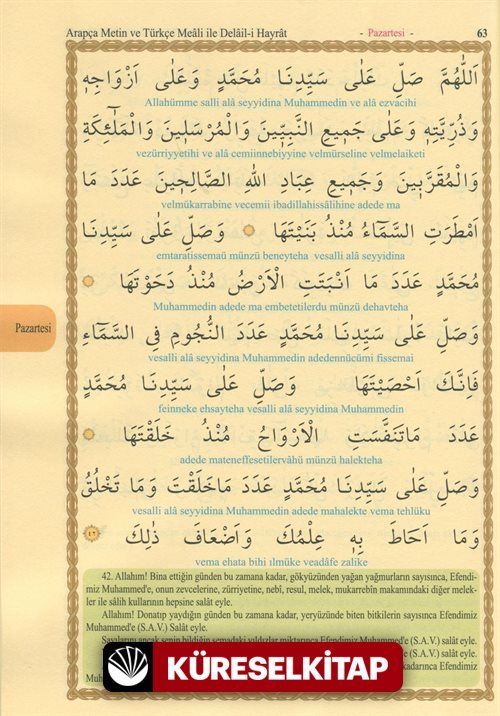 Arapça Metin ve Türkçe Meâli ile Delâil-i Hayrât - Pazartesi - 63
اَللّٰهُمَّ صَلِّ عَلٰى سَيِّدِنَا مُحَمَّدٍ وَعَلٰٓى اَزْوَاجِهٖ
Allahümme salli alâ seyyidina Muhammedin ve alâ ezvacihi
وَذُرِّيَّتِهٖ وَعَلٰى جَمِيعِ النَّبِيّٖنَ وَالْمُرْسَلٖينَ وَالْمَلٰٓئِكَةِ
vezürriyyetihi ve alâ cemiinnebiyyine velmürseline velmelaiketi
وَالْمُقَرَّبٖينَ وَجَمِيعِ عِبَادِ اللّٰهِ الصَّالِحٖينَ عَدَدَ مَا
velmükarrabine vecemii ibadillahissâlihine adede ma
اَمْطَرَتِ السَّمَٓاءُ مُنْذُ بَنَيْتَهَا وَصَلِّ عَلٰى سَيِّدِنَا
emtaratissemaü münzü beneyteha vesalli alâ seyyidina
مُحَمَّدٍ عَدَدَ مَا اَنْبَتَتِ الْاَرْضُ مُنْذُ دَحَوْتَهَا
Muhammedin adede ma embetetilerdu münzü dehavteha
وَصَلِّ عَلٰى سَيِّدِنَا مُحَمَّدٍ عَدَدَ النُّجُومِ فِى السَّمَٓاءِ
vesalli alâ seyyidina Muhammedin adedennücümi fissemai
فَاِنَّكَ اَحْصَيْتَهَا وَصَلِّ عَلٰى سَيِّدِنَا مُحَمَّدٍ
feinneke ehsayteha vesalli alâ seyyidina Muhammedin
عَدَدَ مَاتَنَفَّسَتِ الْاَرْوَاحُ مُنْذُ خَلَقْتَهَا
adede mateneffesetilervâhü münzü halekteha
وَصَلِّ عَلٰى سَيِّدِنَا مُحَمَّدٍ عَدَدَ مَاخَلَقْتَ وَمَا تَخْلُقُ
vesalli alâ seyyidina Muhammedin adede mahalekte vema tehlüku
وَمَا اَحَاطَ بِهٖ عِلْمُكَ وَاَضْعَافَ ذٰلِكَ ٤٢
vema ehata bihi ilmüke veadâfe zalike
Pazartesi
42. Allahım! Bina ettiğin günden bu zamana kadar, gökyüzünden yağan yağmurların sayısınca, Efendi-
miz Muhammed'e, onun zevcelerine, zürriyetine, nebî, resul, melek, mukarrebîn makamındaki diğer melek-
ler ile sâlih kullarının hepsine salât eyle.
Allahım! Donatıp yaydığın günden bu zamana kadar, yeryüzünde biten bitkilerin sayısınca Efendimiz
Muhammed'e (S.A.V.) Salât eyle.
Sayılarını ancak senin bildiğin semadaki yıldızlar miktarınca Efendimiz Muhammed'e (S.A.V.) salât eyle.
salât eyle.
kadarınca Efendimiz
KÜRESELKİTAP